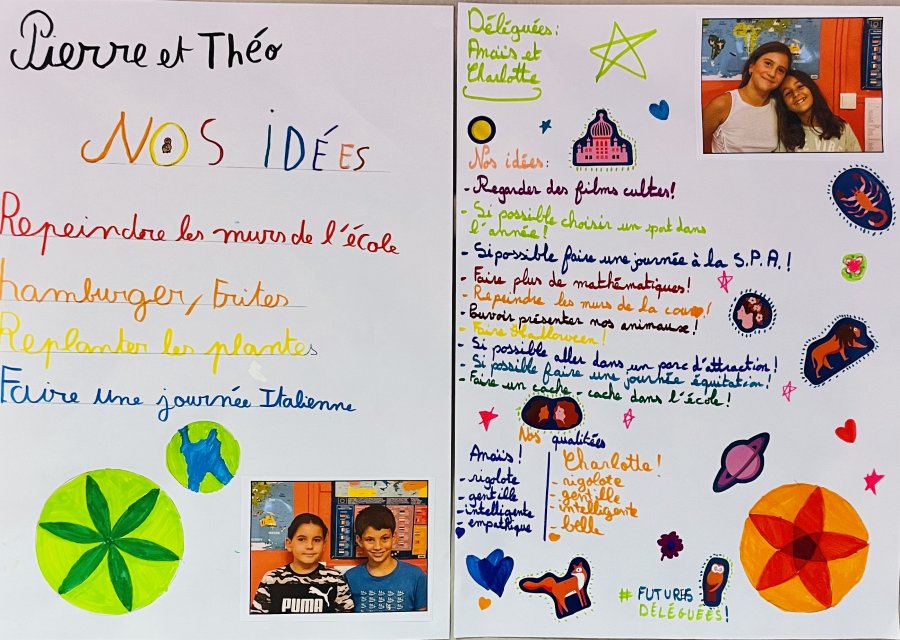 Pierre et Théo
NOS IDÉES
Repeindre les murs de l'école
hamburger/frites
Replanter les plantes
Faire une journée Italienne
PUMA
Déléguées:
Anaïs et
Charlotte
Nos idées:
- Regarder des films cultes!
- Si possible choisir un sport dans
l'année!
- Si possible faire une journée à la S.P.A.!
- Faire plus de mathématiques!
- Repeindre les murs de la cour!
- Pouvoir présenter nos animaux!
- Faire Halloween!
- Si possible aller dans un parc d'attraction!
- Si possible faire une journée équitation!
- Faire un cache-cache dans l'école!
Nos qualitées
Anaïs!
- rigolote
- gentille
- intelligente
- empathique
Charlotte!
- rigolote
- gentille
- intelligente
- belle
# FUTURES
DÉLÉGUÉES!